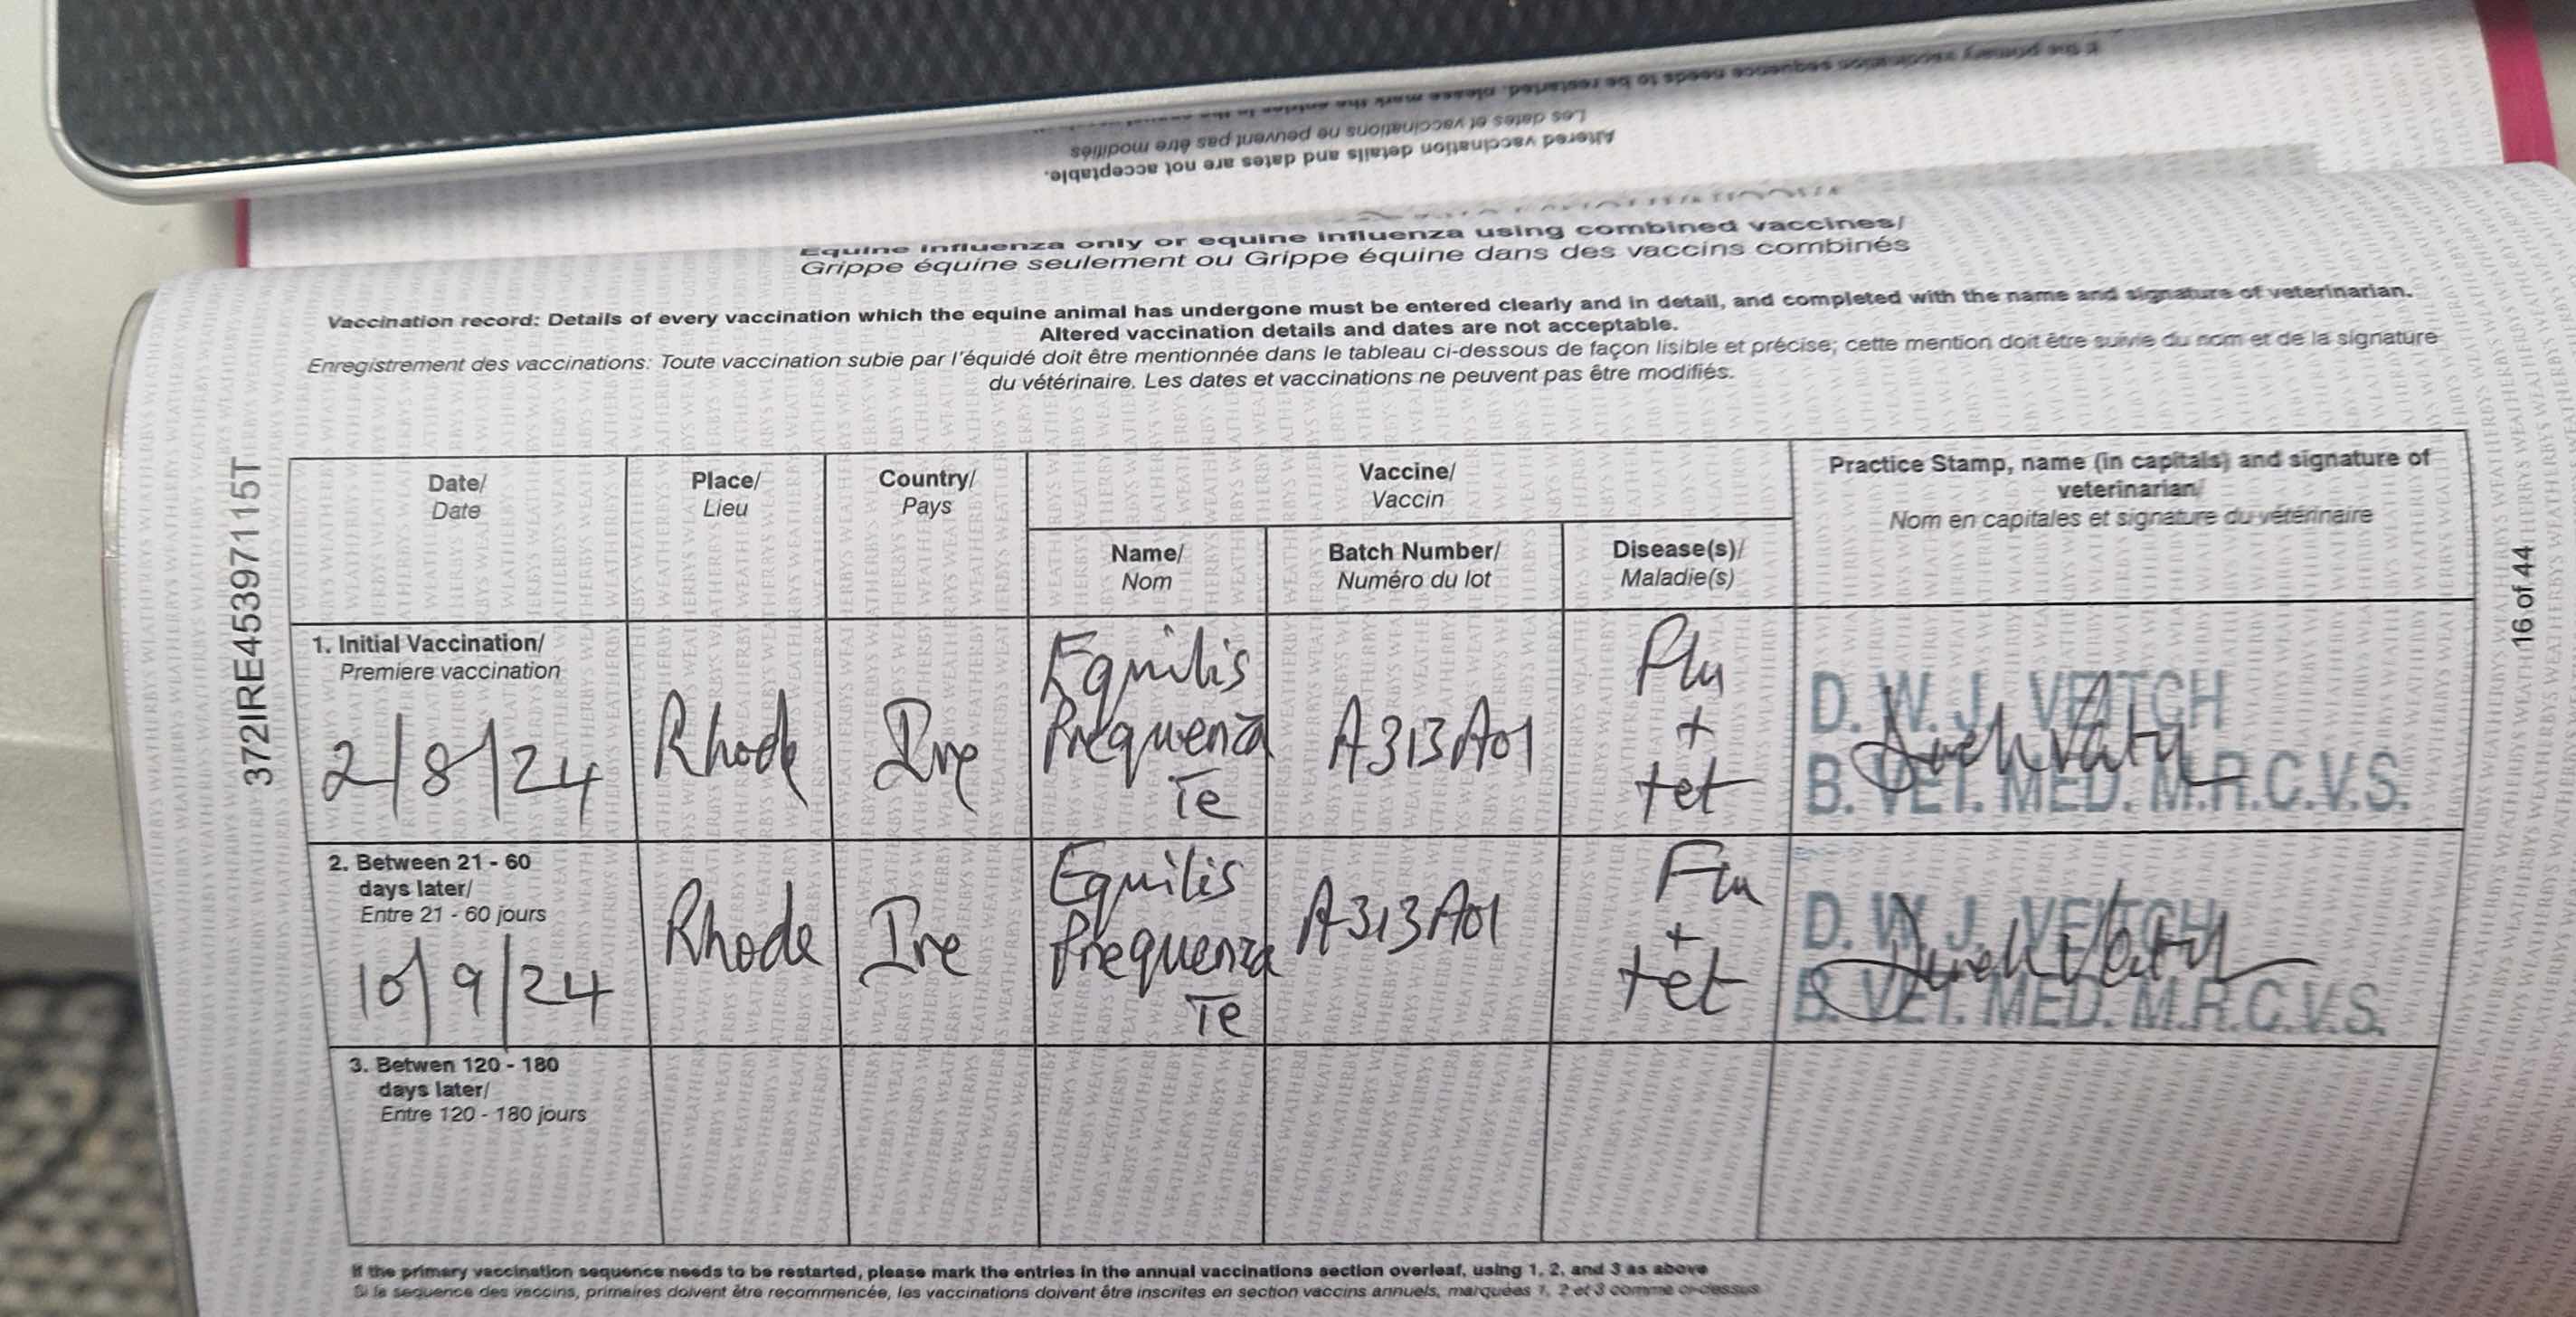 If the primary vaccination sequence needs to be restarted, please mark the entries in the annual
Les dates et vaccinations ne peuvent pas être modifiés
Altered vaccination details and dates are not acceptable.
Equine influenza only or equine influenza using combined vaccines/
Grippe équine seulement ou Grippe équine dans des vaccins combinés
Vaccination record: Details of every vaccination which the equine animal has undergone must be entered clearly and in detail, and completed with the name and signature of veterinarian.
Altered vaccination details and dates are not acceptable.
Enregistrement des vaccinations: Toute vaccination subie par l'équidé doit être mentionnée dans le tableau ci-dessous de façon lisible et précise; cette mention doit être suivie du nom et de la signature
du vétérinaire. Les dates et vaccinations ne peuvent pas être modifiés.
372IRE45397115T
16 of 44
Date/
Date
Place/
Lieu
Country/
Pays
Vaccine/
Vaccin
Name/
Nom
Batch Number/
Numéro du lot
Disease(s)/
Maladie(s)
Practice Stamp, name (in capitals) and signature of
veterinarian/
Nom en capitales et signature du vétérinaire
1. Initial Vaccination/
Premiere vaccination
2/8/24
Rhode
Ire
Equilis
Prequenza
Te
A313A01
Flu
+
tet
D. W. J. VEITCH
B. VET. MED. M.R.C.V.S.
2. Between 21 - 60
days later/
Entre 21 - 60 jours
10/9/24
Rhode
Ire
Equilis
Prequenza
Te
A313A01
Flu
+
tet
D. W. J. VEITCH
B. VET. MED. M.R.C.V.S.
3. Betwen 120 - 180
days later/
Entre 120 - 180 jours
If the primary vaccination sequence needs to be restarted, please mark the entries in the annual vaccinations section overleaf, using 1, 2, and 3 as above
Si la sequence des vaccins, primaires doivent être recommencée, les vaccinations doivent être inscrites en section vaccins annuels, marquées 1, 2 et 3 comme ci-dessus